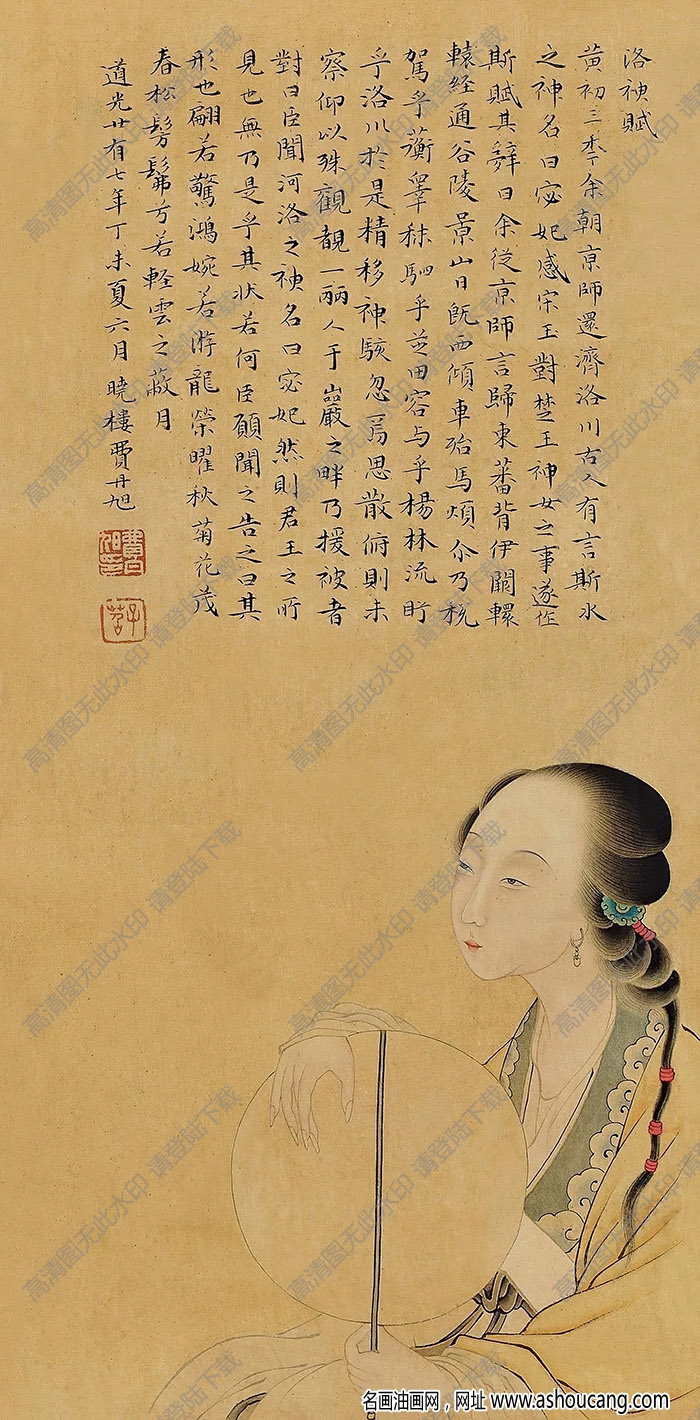 洛神賦
黃初三季余朝京師還濟洛川古人有言斯水
之神名曰宓妃感宋玉對楚王神女之事遂作
斯賦其辭曰余從京師言歸東藩背伊闕轘
轅經通谷陵景山日既西傾車殆馬煩尒乃稅
駕乎蘅皋秣駟乎芝田容与乎楊林流盼
乎洛川於是精移神駭忽焉思散俯則未
察仰以殊觀覩一麗人于巖之畔乃援彼者
對曰臣聞河洛之神名曰宓妃然則君王之所
見也無乃是乎其狀若何臣願聞之告之曰其
形也翩若驚鴻婉若游龍榮曜秋菊花茂
春松髣髴兮若軽雲之蔽月
道光廿有七年丁未夏六月曉樓費丹旭
費丹旭印
子苕
高清图无此水印 请登陆下载
名画油画网，网址 www.ashoucang.com